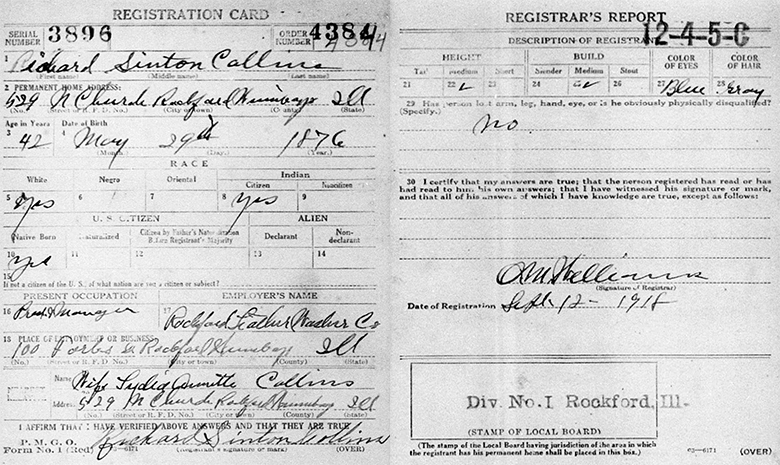 REGISTRATION CARD
SERIAL NUMBER 3896 ORDER NUMBER 4384 4384
1 Richard Sinton Collins
(First name) (Middle name) (Last name)
2 PERMANENT HOME ADDRESS:
529 N Church Rockford Winnebago Ill
(No.) (Street or R. F. D. No.) (City or town) (County) (State)
Age in Years Date of Birth
3 42 4 May 29th 1876
(Month.) (Day.) (Year.)
RACE
White Negro Oriental Indian
Citizen Noncitizen
5 Yes 6 7 8 Yes 9
U. S. CITIZEN ALIEN
Native Born Naturalized Citizen by Father's Naturalization Before Registrant's Majority Declarant Non-declarant
10 Yes 11 12 13 14
15
If not a citizen of the U. S., of what nation are you a citizen or subject?
PRESENT OCCUPATION EMPLOYER'S NAME
16 Pres & Manager 17 Rockford Leather Washer Co
18 PLACE OF EMPLOYMENT OR BUSINESS:
100 Forbes Rockford Winnebago Ill
(No.) (Street or R. F. D. No.) (City or town) (County) (State)
Name Wife Lydia Collins
Address 529 N Church Rockford Winnebago Ill
(No.) (Street or R. F. D. No.) (City or town) (County) (State)
I AFFIRM THAT I HAVE VERIFIED ABOVE ANSWERS AND THAT THEY ARE TRUE
P. M. G. O.
Form No. 1 (Red) 03-6171 Richard Sinton Collins
(Registrant's signature or mark) (OVER)
REGISTRAR'S REPORT
12-4-5-C
DESCRIPTION OF REGISTRANT
HEIGHT BUILD COLOR OF EYES COLOR OF HAIR
Tall Medium Short Slender Medium Stout
21 22 23 24 25 26 27 Blue 28 Gray
29 Has person lost arm, leg, hand, eye, or is he obviously physically disqualified?
(Specify.)
no
30 I certify that my answers are true; that the person registered has read or has
had read to him his own answers; that I have witnessed his signature or mark,
and that all of his answers of which I have knowledge are true, except as follows:
(Signature of Registrar)
Date of Registration Sept 12-1918
Div. No. 1 Rockford, Ill.
(STAMP OF LOCAL BOARD)
(The stamp of the Local Board having jurisdiction of the area in which
the registrant has his permanent home shall be placed in this box.)
03-6171 (OVER)